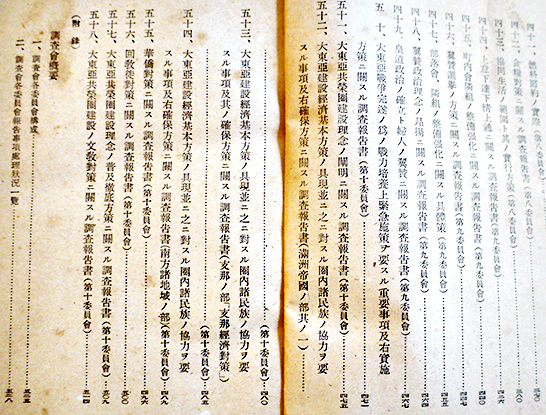 四十一、燃料節約ノ實
四十二、食糧對策ニ關スル調査報告書(第八委員會)
四十三、協同生活ノ範圍ト其ノ實行方策(第八委員會)
四十四、上意下達下情上通ニ關スル調査報告書(第九委員會)
四十五、町內會隣組ノ整備强化ニ關スル調査報告書(第九委員會)
四十六、翼贊選擧ノ方策ニ關スル調査報告書(第九委員會)
四十七、部落會、隣組ノ整備强化ニ關スル具體策(第九委員會)
四十八、翼贊政治理念ノ昂揚ニ關スル調査報告書(第九委員會)
四十九、皇道政治ノ確立ト婦人ノ翼贊ニ關スル調査報告書(第九委員會)
五十、大東亞戰爭完遂ノ爲ノ戰力培養上緊急施策ヲ要スル重要事項及右實施
方策ニ關スル調査報告書(第十委員會)
五十一、大東亞共榮圈建設理念ノ闡明ニ關スル調査報告書(第十委員會) 四七五
五十二、大東亞建設經濟基本方策ノ具現並ニ之ニ對スル圈內諸民族ノ協力ヲ要
スル事項及其ノ確保方策ニ關スル調査報告書(滿洲帝國ノ部其ノ一)
(第十委員會) 四八〇
五十三、大東亞建設經濟基本方策ノ具現並ニ之ニ對スル圈內諸民族ノ協力ヲ要
スル事項及其ノ確保方策ニ關スル調査報告書(支那ノ部)(支那經濟對策)
(第十委員會) 四八五
五十四、大東亞建設經濟基本方策ノ具現並ニ之ニ對スル圈內諸民族ノ協力ヲ要
スル事項及右確保方策ニ關スル調査報告書(南方諸地域ノ部)(第十委員會) 四八八
五十五、華僑對策ニ關スル調査報告書(第十委員會) 四九六
五十六、回教徒對策ニ關スル調査報告書(第十委員會) 五〇〇
五十七、大東亞共榮圈建設理念ノ普及徹底方策ニ關スル調査報告書(第十委員會) 五〇九
五十八、大東亞共榮圈建設ノ文教對策ニ關スル調査報告書(第十委員會) 五一四
(附錄)
調査會概要
一、調査會各委員會構成 五二五
二、調査會各委員會報告事項處理狀況一覽 五三八